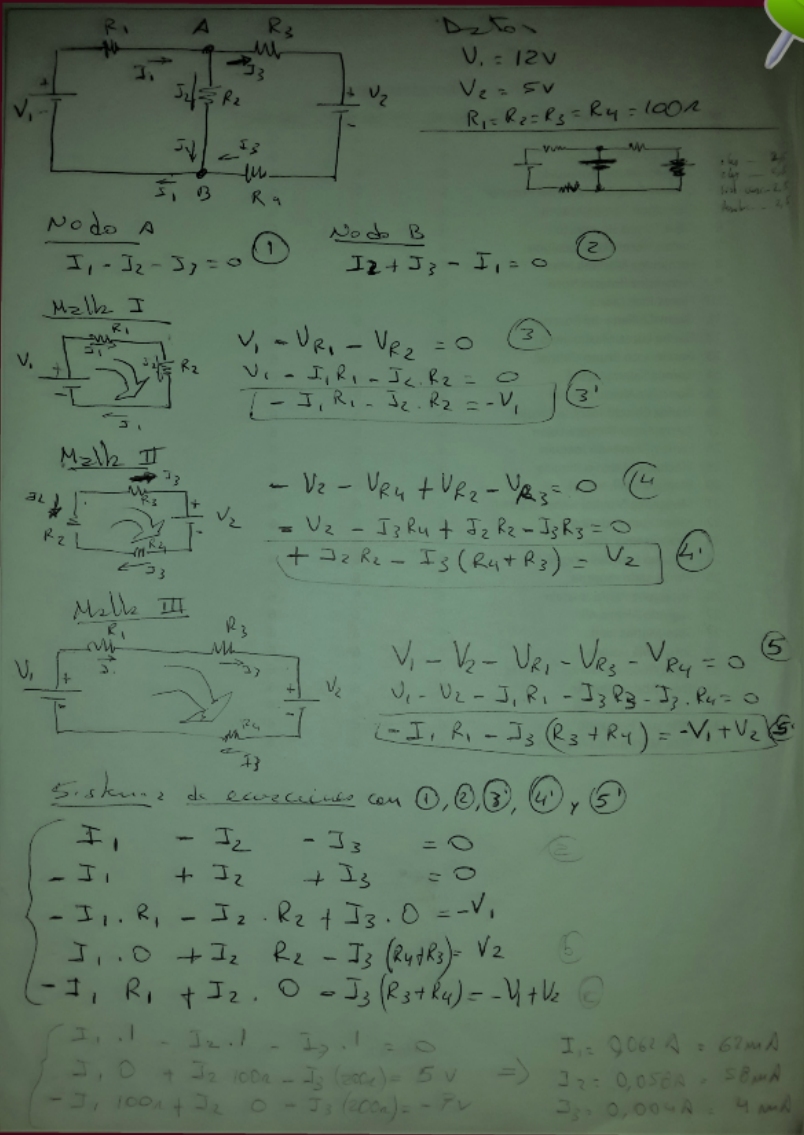 R1 A R3
I1 I3
V1 + - I2 R2 + - V2
I1 I3
I1 B R4
Datos
V1 = 12V
V2 = 5V
R1=R2=R3=R4=100Ω
Nodo A
I1 - I2 - I3 = 0 ①
Nodo B
I2 + I3 - I1 = 0 ②
Malla I
R1
V1 + - I1 I2 R2
I1
V1 - VR1 - VR2 = 0 ③
V1 - I1R1 - I2.R2 = 0
- I1R1 - I2.R2 = -V1 ③'
Malla II
I3
I2 R3 + - V2
R2 R4
I3
- V2 - VR4 + VR2 - VR3 = 0 ④
- V2 - I3R4 + I2R2 - I3R3 = 0
+ I2R2 - I3(R4+R3) = V2 ④'
Malla III
R1 R3
V1 + - I1 I3 + - V2
R4
I3
V1 - V2 - VR1 - VR3 - VR4 = 0 ⑤
V1 - V2 - I1R1 - I3R3 - I3.R4 = 0
- I1R1 - I3(R3+R4) = -V1+V2 ⑤'
Sistema de ecuaciones con ①,②,③',④' y ⑤'
I1 - I2 - I3 = 0
- I1 + I2 + I3 = 0
- I1.R1 - I2.R2 + I3.0 = -V1
I1.0 + I2 R2 - I3(R4+R3) = V2
- I1 R1 + I2.0 - I3(R3+R4) = -V1+V2
I1.1 - I2.1 - I3.1 = 0
I1 0 + I2 100Ω - I3(200Ω) = 5V
- I1 100Ω + I2 0 - I3(200Ω) = -7V
=>
I1 = 0,062A = 62mA
I2 = 0,058A = 58mA
I3 = 0,004A = 4mA